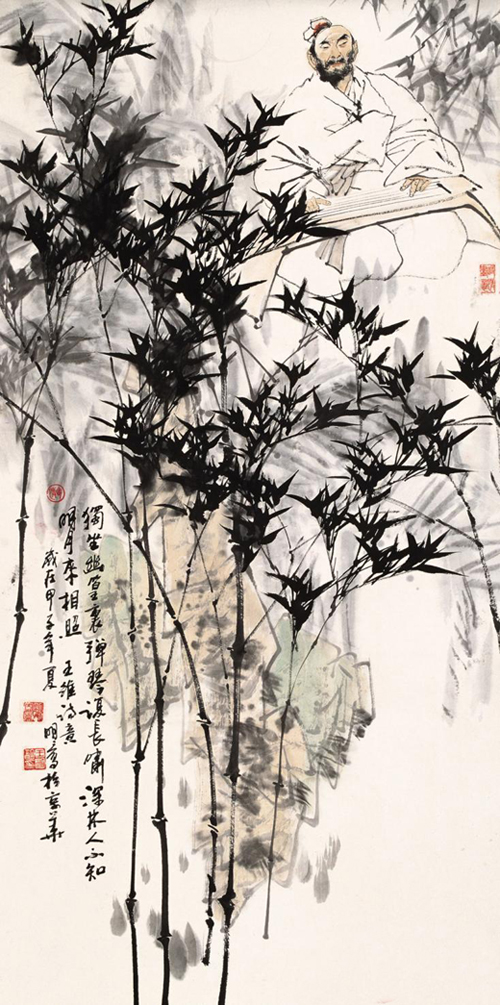 獨坐幽篁裏彈琴復長嘯深林人不知
明月來相照 王維詩意
歲在甲子年夏
明 於京華